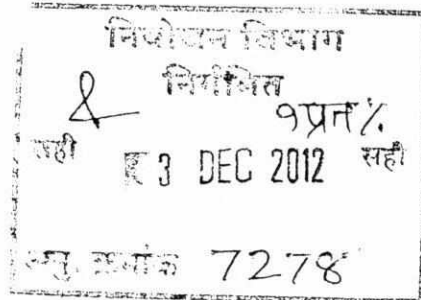 नियोजन विभाग
निर्गमित
१प्रत%
सही 3 DEC 2012 सही
अनु. क्रमांक 7278